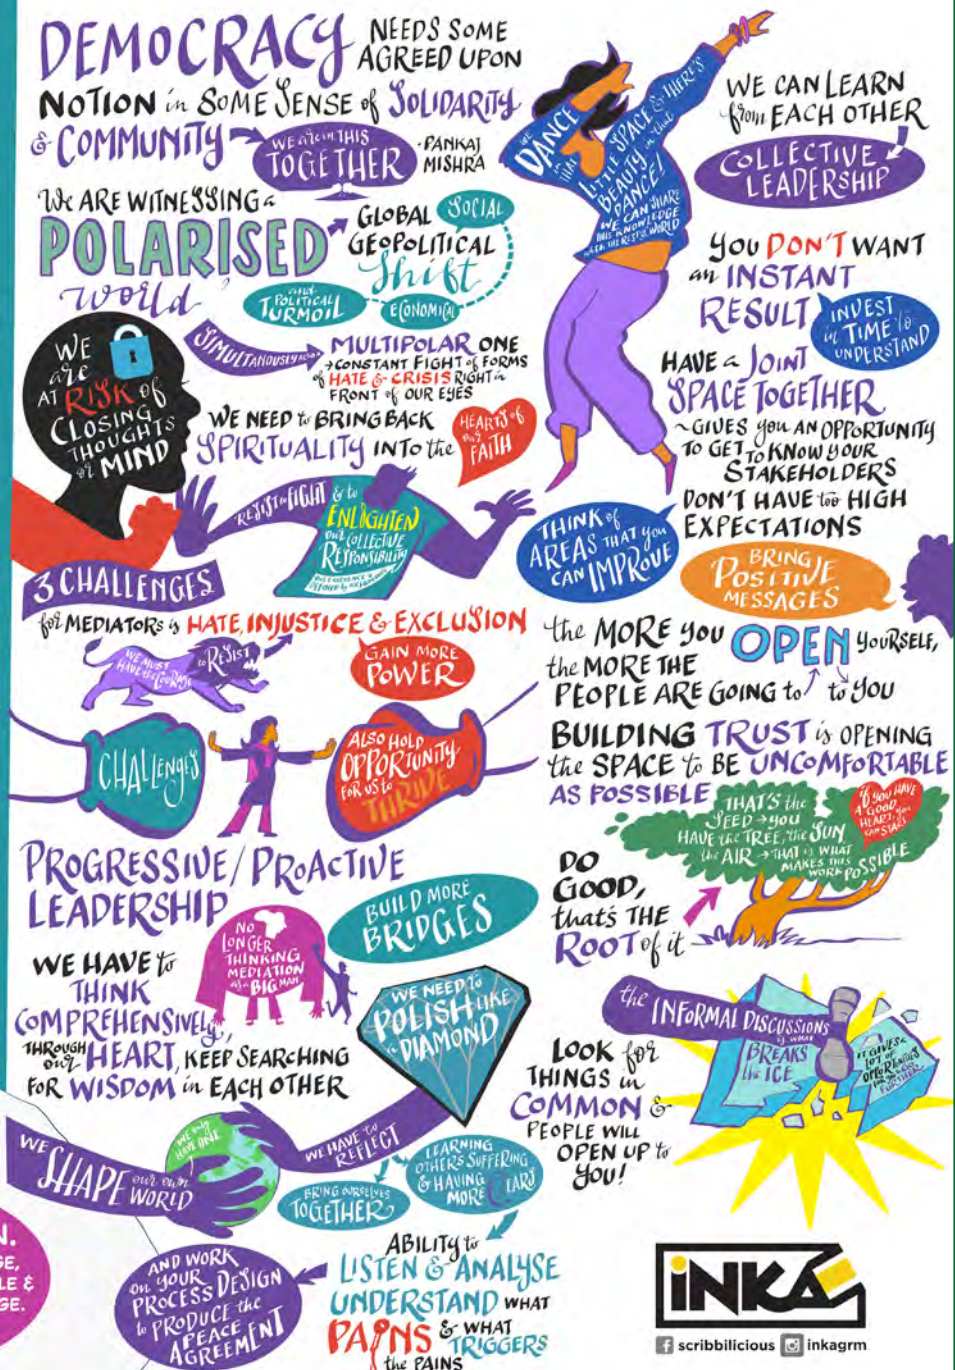 DEMOCRACY NEEDS SOME
AGREED UPON
NOTION in SOME SENSE of SOLIDARITY
& COMMUNITY
WE are in THIS
TOGETHER
-PANKAJ
MISHRA
WE ARE WITNESSING a
POLARISED
world
GLOBAL
SOCIAL
GEOPOLITICAL
Shift
ECONOMICAL
and
POLITICAL
TURMOIL
SIMULTANOUSLY ALSO a
MULTIPOLAR ONE
CONSTANT FIGHT of FORMS
of HATE & CRISIS RIGHT in
FRONT of OUR EYES
WE
are
AT RISK of
CLOSING
THOUGHTS
or MIND
WE NEED to BRING BACK
SPIRITUALITY INTO the
HEARTS of
our
FAITH
RESIST the FIGHT & to
ENLIGHTEN
our COLLECTIVE
RESPONSIBILITY
3 CHALLENGES
for MEDIATORS is HATE, INJUSTICE & EXCLUSION
WE MUST
HAVE the COURAGE
to RESIST
GAIN MORE
POWER
CHALLENGES
ALSO HOLD
OPPORTUNITY
FOR US to
THRIVE
PROGRESSIVE/PROACTIVE
LEADERSHIP
NO
LONGER
THINKING
MEDIATION
as a BIG MAN
BUILD MORE
BRIDGES
WE HAVE to
THINK
COMPREHENSIVELY,
THROUGH
our HEART, KEEP SEARCHING
FOR WISDOM in EACH OTHER
WE NEED to
POLISH LIKE
a DIAMOND
WE
SHAPE our own
WORLD
WE only
HAVE ONE
WE HAVE to
REFLECT
BRING OURSELVES
TOGETHER
LEARNING
OTHERS SUFFERING
& HAVING
MORE EARS
ABILITY to
LISTEN & ANALYSE
UNDERSTAND WHAT
PAINS & WHAT
TRIGGERS
the PAINS
AND WORK
on YOUR
PROCESS DESIGN
to PRODUCE the
PEACE
AGREEMENT
N.
GE,
LE &
GE.
WE
DANCE
in THAT
LITTLE SPACE & THERE'S
BEAUTY in that
DANCE!
WE CAN SHARE
this KNOWLEDGE
with the REST of WORLD
WE CAN LEARN
from EACH OTHER
COLLECTIVE
LEADERSHIP
YOU DON'T WANT
an INSTANT
RESULT
INVEST
in TIME to
UNDERSTAND
HAVE a JOINT
SPACE TOGETHER
~GIVES you AN OPPORTUNITY
TO GET to KNOW YOUR
STAKEHOLDERS
DON'T HAVE too HIGH
EXPECTATIONS
THINK of
AREAS THAT you
CAN IMPROVE
BRING
POSITIVE
MESSAGES
the MORE you OPEN YOURSELF,
the MORE THE
PEOPLE ARE GOING to to YOU
BUILDING TRUST is OPENING
the SPACE to BE UNCOMFORTABLE
AS POSSIBLE
THAT'S the
SEED → you
HAVE the TREE, the SUN
the AIR → THAT is WHAT
MAKES THIS
WORK POSSIBLE
if YOU HAVE
A GOOD
HEART, you
CAN START
DO
GOOD,
that's THE
ROOT of it
the INFORMAL DISCUSSIONS
is WHAT
BREAKS
the ICE
IT GIVES a
LOT OF
OPPORTUNITIES
FURTHER
LOOK for
THINGS in
COMMON &
PEOPLE WILL
OPEN UP to
YOU!
iNKA
scribbilicious inkagrm